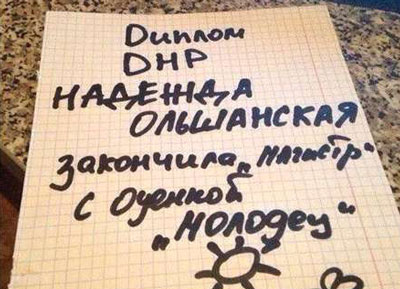 Диплом
DНР
НАДЕЖДА
ОЛЬШАНСКАЯ
Закончила „Магистр“
с Оценкой
„МОЛОДец“